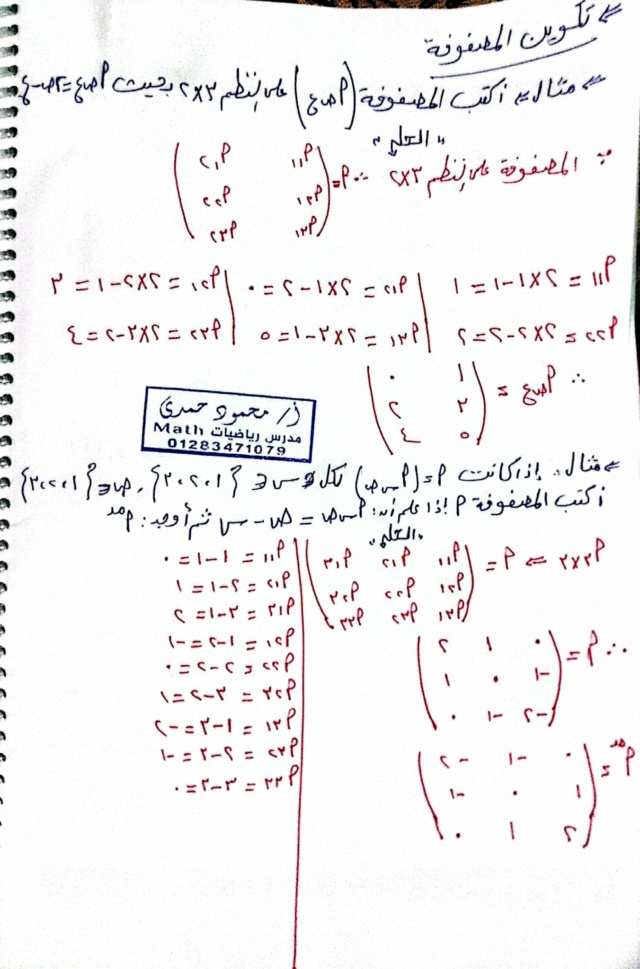 ⇐ تكوين المصفوفة
⇐ مثال = اكتب المصفوفة (أ ص ع) على النظم ٣×٢ بحيث أ ص ع = ٢ص - ع
"الحل"
∵ المصفوفة على النظم ٣×٢ ∴ أ =
( أ١١ أ١٢
أ٢١ أ٢٢
أ٣١ أ٣٢ )
أ١١ = ٢×١-١ = ١ | أ١٢ = ٢×١-٢ = ٠ | أ٢١ = ٢×٢-١ = ٣
أ٢٢ = ٢×٢-٢ = ٢ | أ٣١ = ٢×٣-١ = ٥ | أ٣٢ = ٢×٣-٢ = ٤
∴ أ ص ع =
( ١ ٠
٣ ٢
٥ ٤ )
أ/ محمود حمدى
مدرس رياضيات Math
01283471079
⇐ مثال: إذا كانت أ = (أ س ص) لكل س ∈ {١،٢،٣}، ص ∈ {١،٢،٣}
اكتب المصفوفة أ إذا علم أن: أ س ص = ص - س ثم أوجد: أ مد
"الحل"
أ٣×٣ ⇐ أ =
( أ١١ أ١٢ أ١٣
أ٢١ أ٢٢ أ٢٣
أ٣١ أ٣٢ أ٣٣ )
أ١١ = ١-١ = ٠
أ١٢ = ٢-١ = ١
أ١٣ = ٣-١ = ٢
أ٢١ = ١-٢ = -١
أ٢٢ = ٢-٢ = ٠
أ٢٣ = ٣-٢ = ١
أ٣١ = ١-٣ = -٢
أ٣٢ = ٢-٣ = -١
أ٣٣ = ٣-٣ = ٠
∴ أ =
( ٠ ١ ٢
-١ ٠ ١
-٢ -١ ٠ )
أ مد =
( ٠ -١ -٢
١ ٠ -١
٢ ١ ٠ )